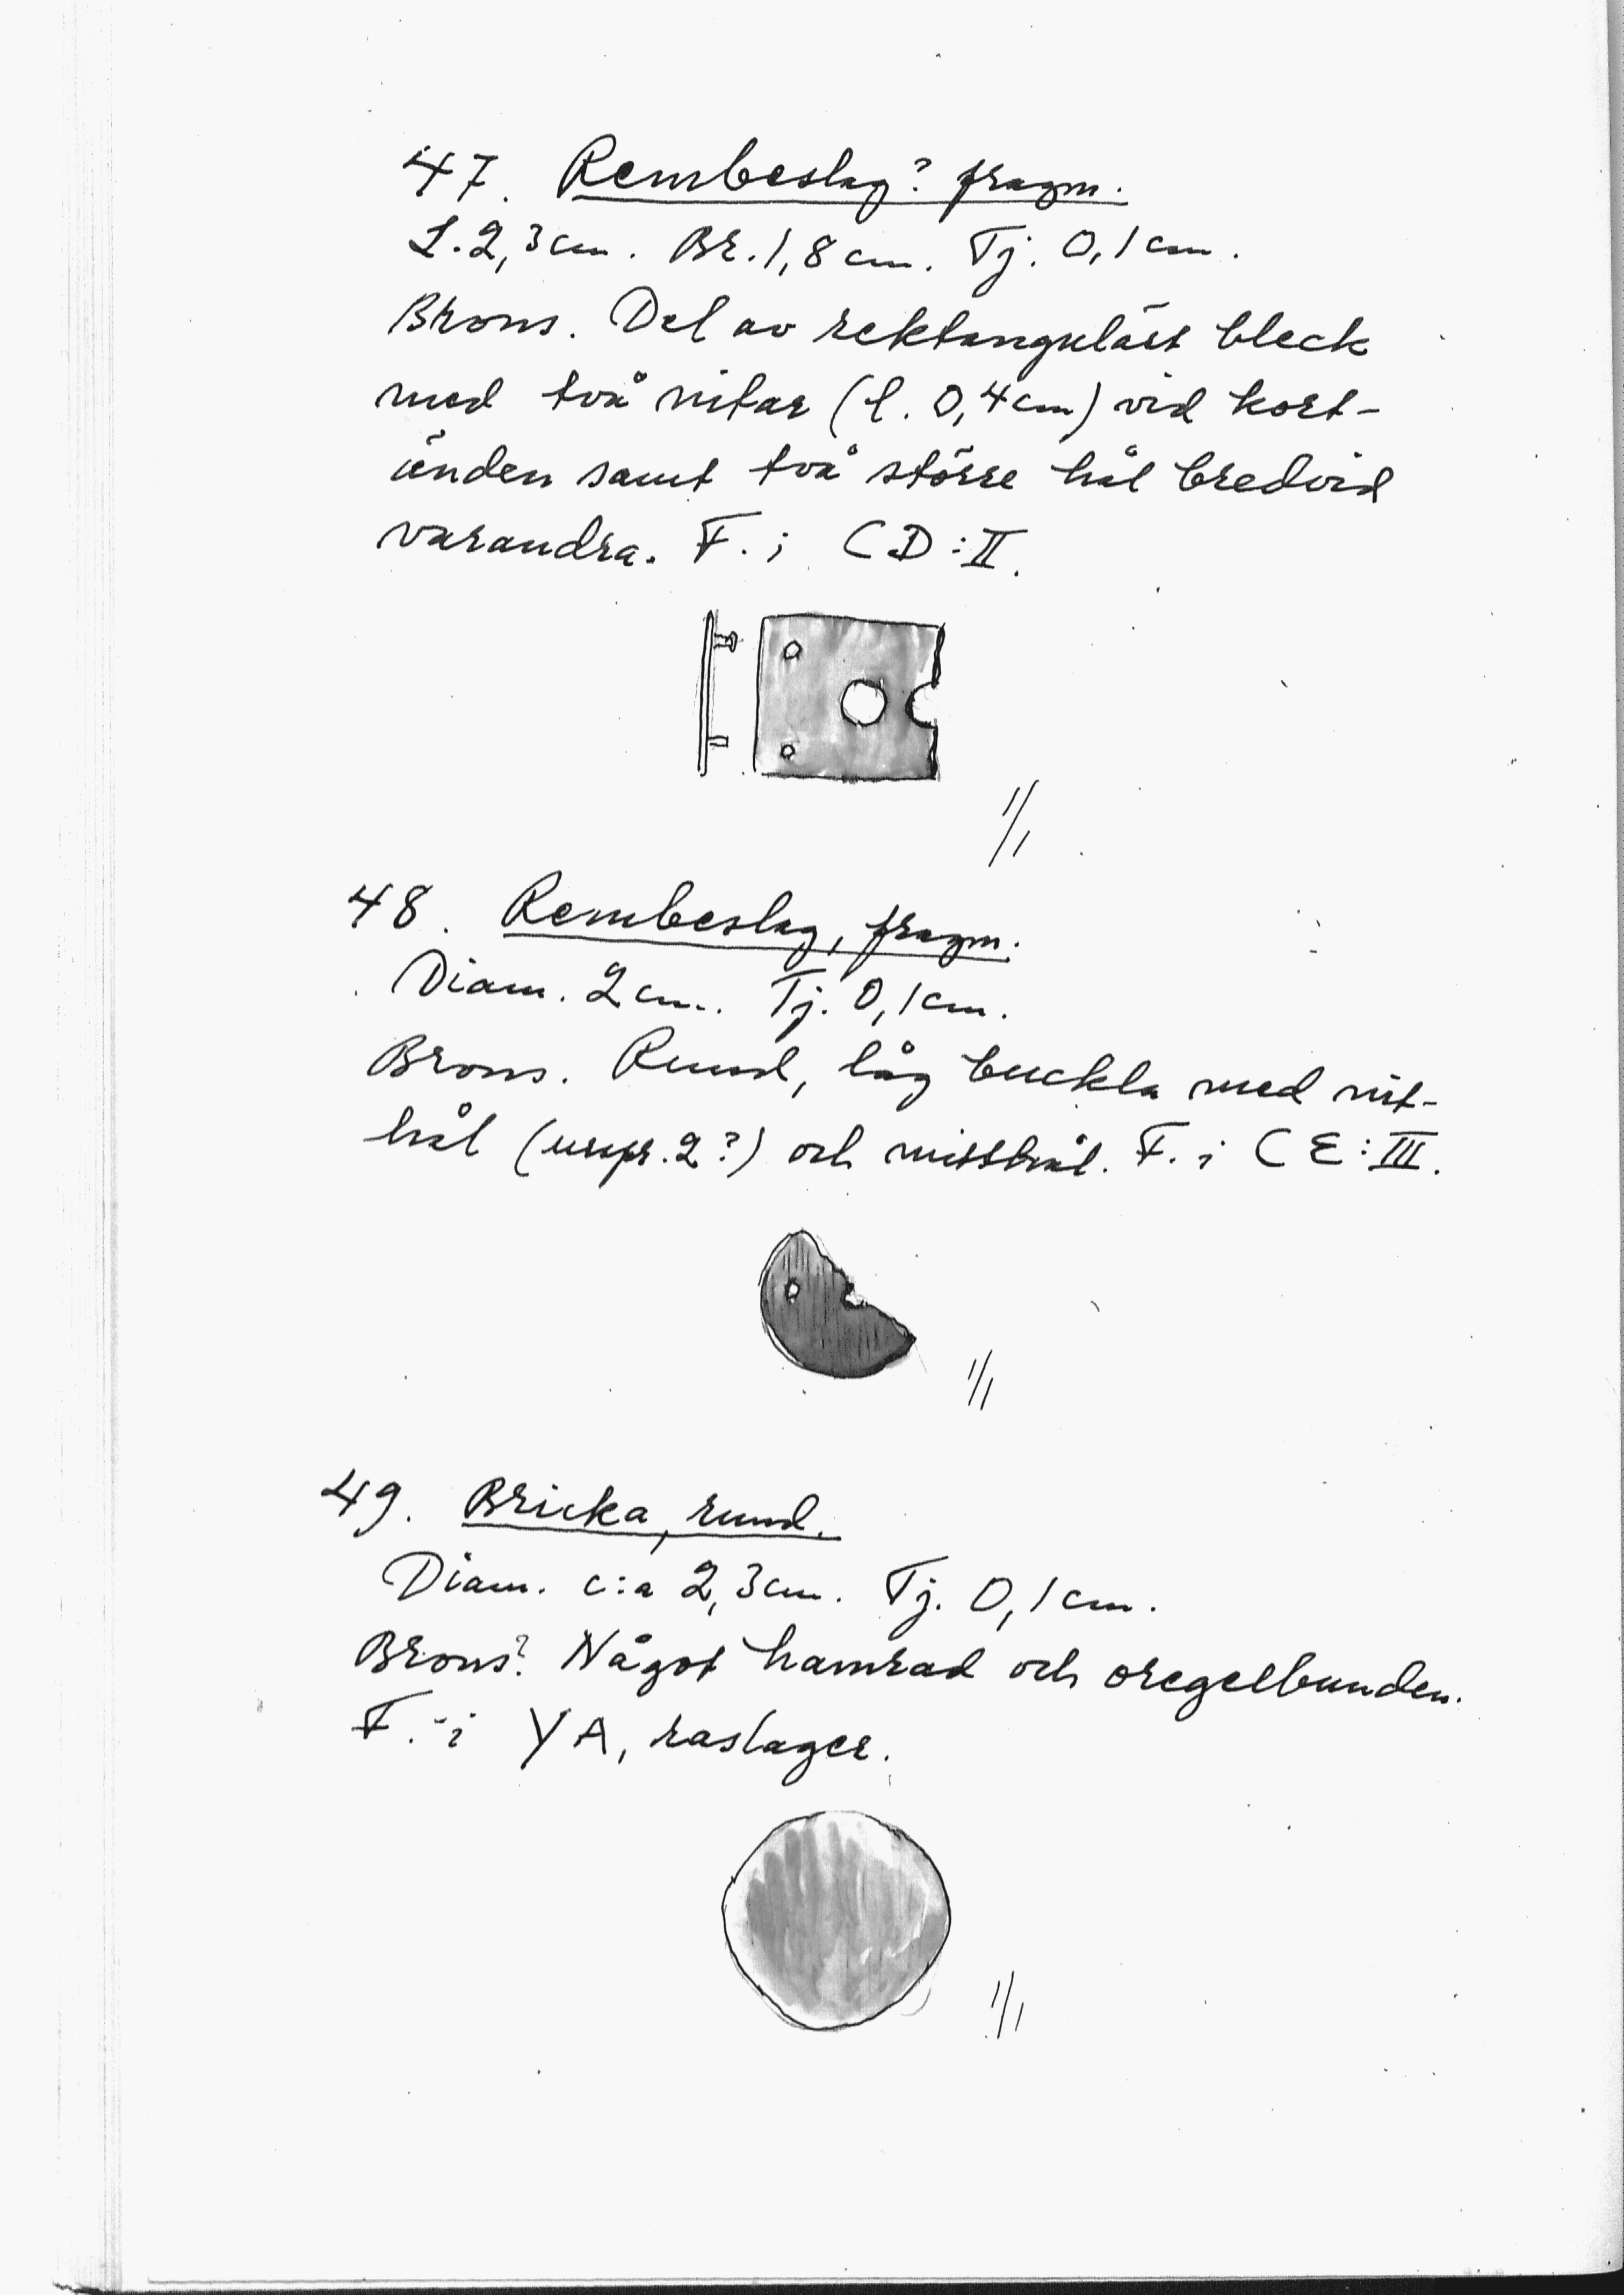 47. Rembeslag? fragm.
L. 2,3 cm. Br. 1,8 cm. Tj. 0,1 cm.
Brons. Del av rektangulärt bleck
med två nitar (l. 0,4 cm) vid kort-
änden samt två större hål bredvid
varandra. F. i CD:II.
1/1
48. Rembeslag, fragm.
Diam. 2 cm. Tj. 0,1 cm.
Brons. Rund, låg buckla med nit-
hål (urspr. 2?) och mitthål. F. i CE:III.
1/1
49. Bricka, rund.
Diam. c:a 2,3 cm. Tj. 0,1 cm.
Brons? Något hamrad och oregelbunden.
F. i YA, raslager.
1/1